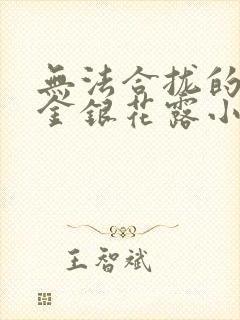 無法合拢的
金銀花露小
王智斌